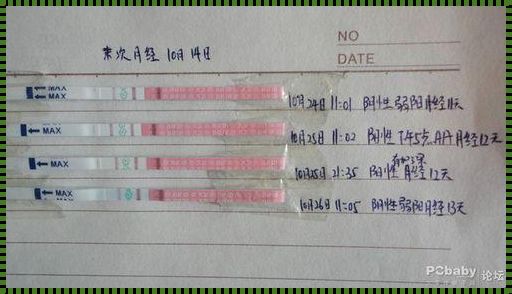 NO
末次月经 10月14日
DATE
MAX
MAX
10月24日 11:01 阴性弱阳月经11天
MAX
10月25日 11:02 阴性 T45点 月经12天
有加深
MAX
10月25日 21:35 阴性 月经12天
MAX
10月26日 11:05 阴性弱阳月经13天
PCbaby 论坛